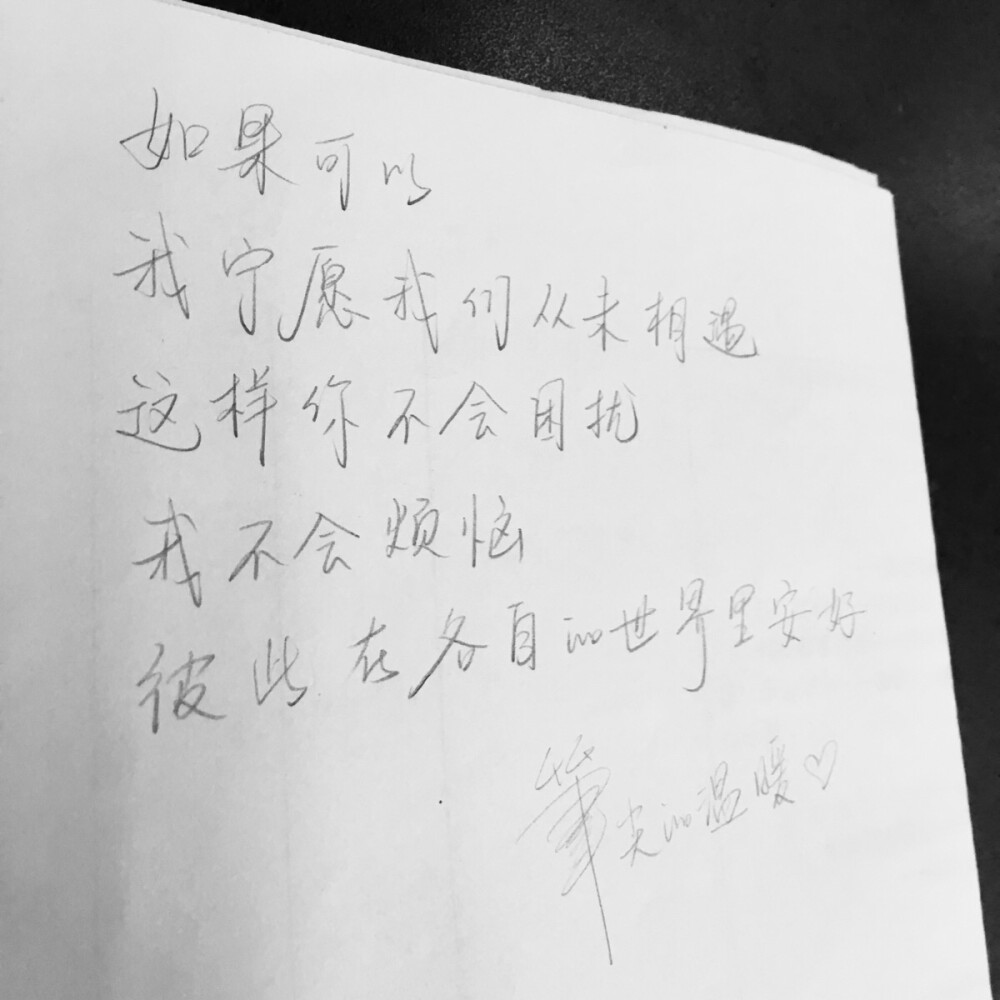 如果可以
我宁愿我们从未相遇
这样你不会困扰
我不会烦恼
彼此在各自的世界里安好
筆尖的温暖♡